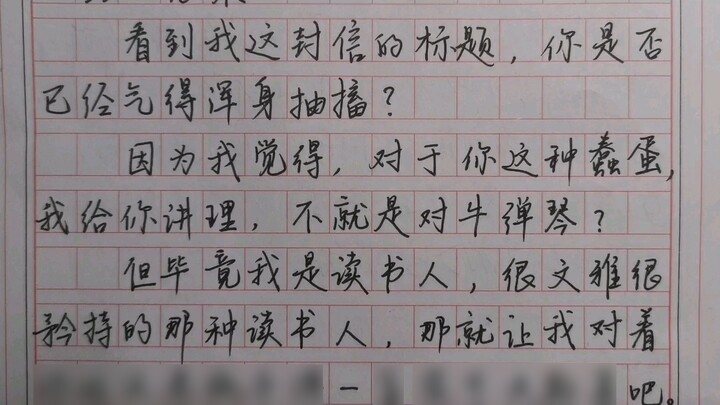 看到我这封信的标题，你是否
已经气得浑身抽搐？
因为我觉得，对于你这种蠢蛋，
我给你讲理，不就是对牛弹琴？
但毕竟我是读书人，很文雅很
矜持的那种读书人，那就让我对着
一
吧。